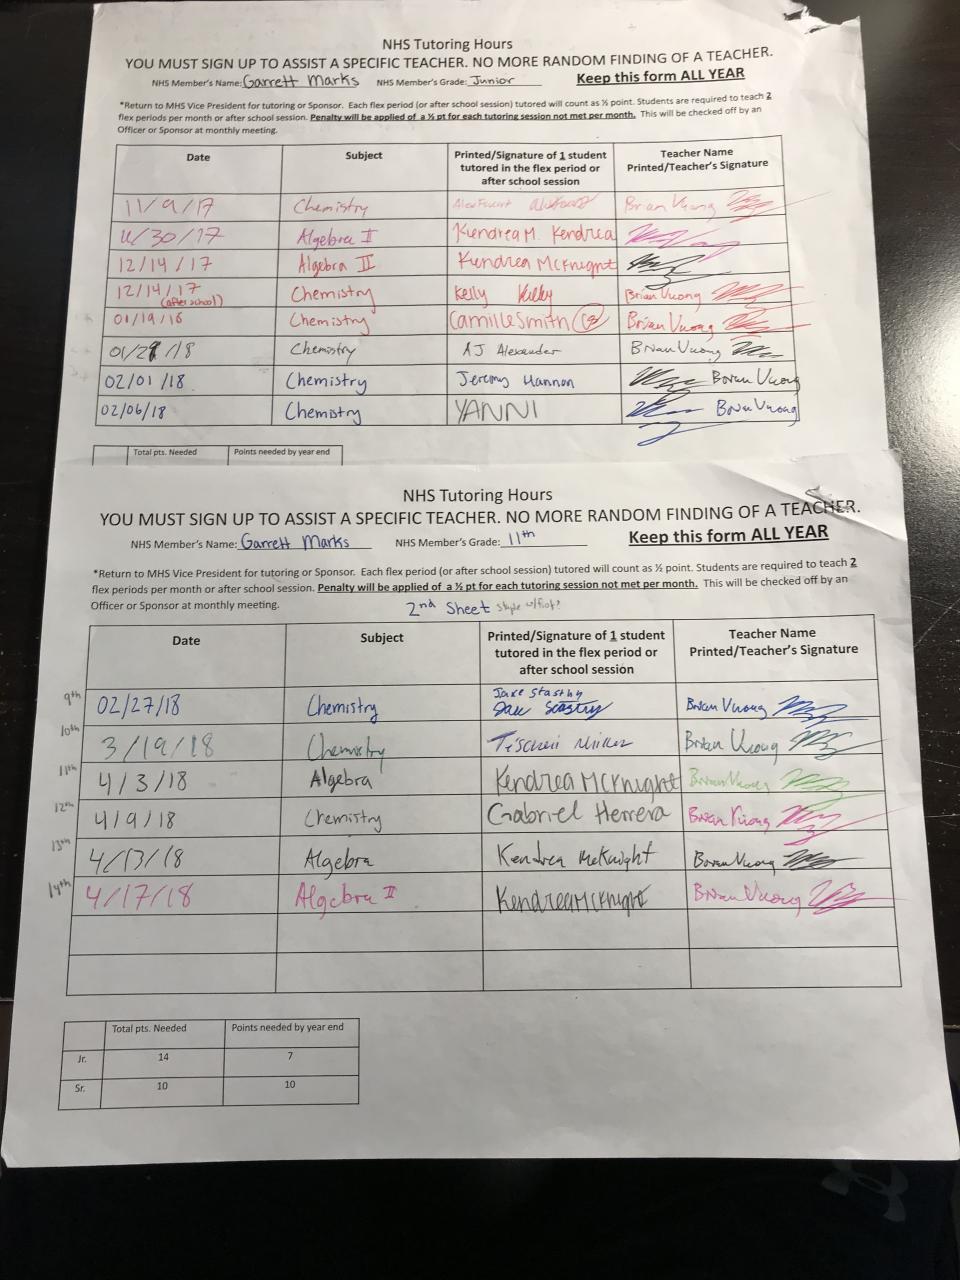 NHS Tutoring Hours
YOU MUST SIGN UP TO ASSIST A SPECIFIC TEACHER. NO MORE RANDOM FINDING OF A TEACHER.
NHS Member's Name: Garrett Marks NHS Member's Grade: Junior Keep this form ALL YEAR
*Return to MHS Vice President for tutoring or Sponsor. Each flex period (or after school session) tutored will count as ½ point. Students are required to teach 2
flex periods per month or after school session. Penalty will be applied of a ½ pt for each tutoring session not met per month. This will be checked off by an
Officer or Sponsor at monthly meeting.
Date Subject Printed/Signature of 1 student tutored in the flex period or after school session Teacher Name Printed/Teacher's Signature
11/9/17 Chemistry Brian Vuong
11/30/17 Algebra II Kendrea M. Kendrea
12/14/17 Algebra II Kendrea McKnight
12/14/17 (after school) Chemistry Kelly Brian Vuong
01/19/18 Chemistry Camille Smith CS Brian Vuong
01/29/18 Chemistry AJ Alexander Brian Vuong
02/01/18 Chemistry Jeremy Hannon Brian Vuong
02/06/18 Chemistry YANNI Brian Vuong
Total pts. Needed Points needed by year end
NHS Tutoring Hours
YOU MUST SIGN UP TO ASSIST A SPECIFIC TEACHER. NO MORE RANDOM FINDING OF A TEACHER.
NHS Member's Name: Garrett Marks NHS Member's Grade: 11th Keep this form ALL YEAR
*Return to MHS Vice President for tutoring or Sponsor. Each flex period (or after school session) tutored will count as ½ point. Students are required to teach 2
flex periods per month or after school session. Penalty will be applied of a ½ pt for each tutoring session not met per month. This will be checked off by an
Officer or Sponsor at monthly meeting.
2nd Sheet
Date Subject Printed/Signature of 1 student tutored in the flex period or after school session Teacher Name Printed/Teacher's Signature
9th 02/27/18 Chemistry Jake Stasthy Brian Vuong
10th 3/19/18 Chemistry Miller Brian Vuong
11th 4/3/18 Algebra Kendrea McKnight Brian Vuong
12th 4/9/18 Chemistry Gabriel Herrera Brian Vuong
13th 4/13/18 Algebra Kendrea McKnight Brian Vuong
14th 4/17/18 Algebra II Kendrea McKnight Brian Vuong
Total pts. Needed Points needed by year end
Jr. 14 7
Sr. 10 10